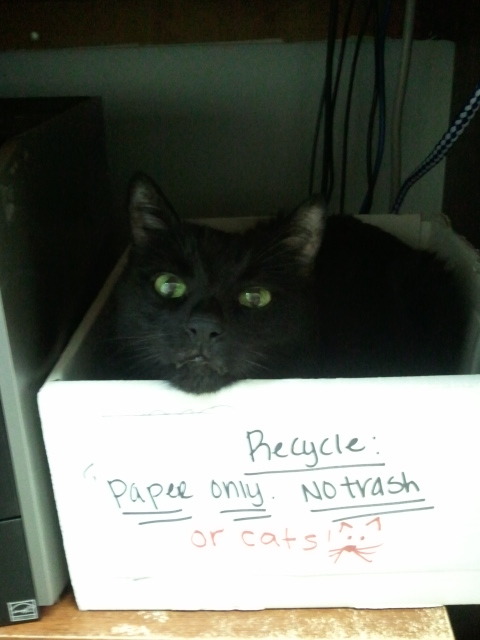 Recycle:
Paper only. No trash
or cats!